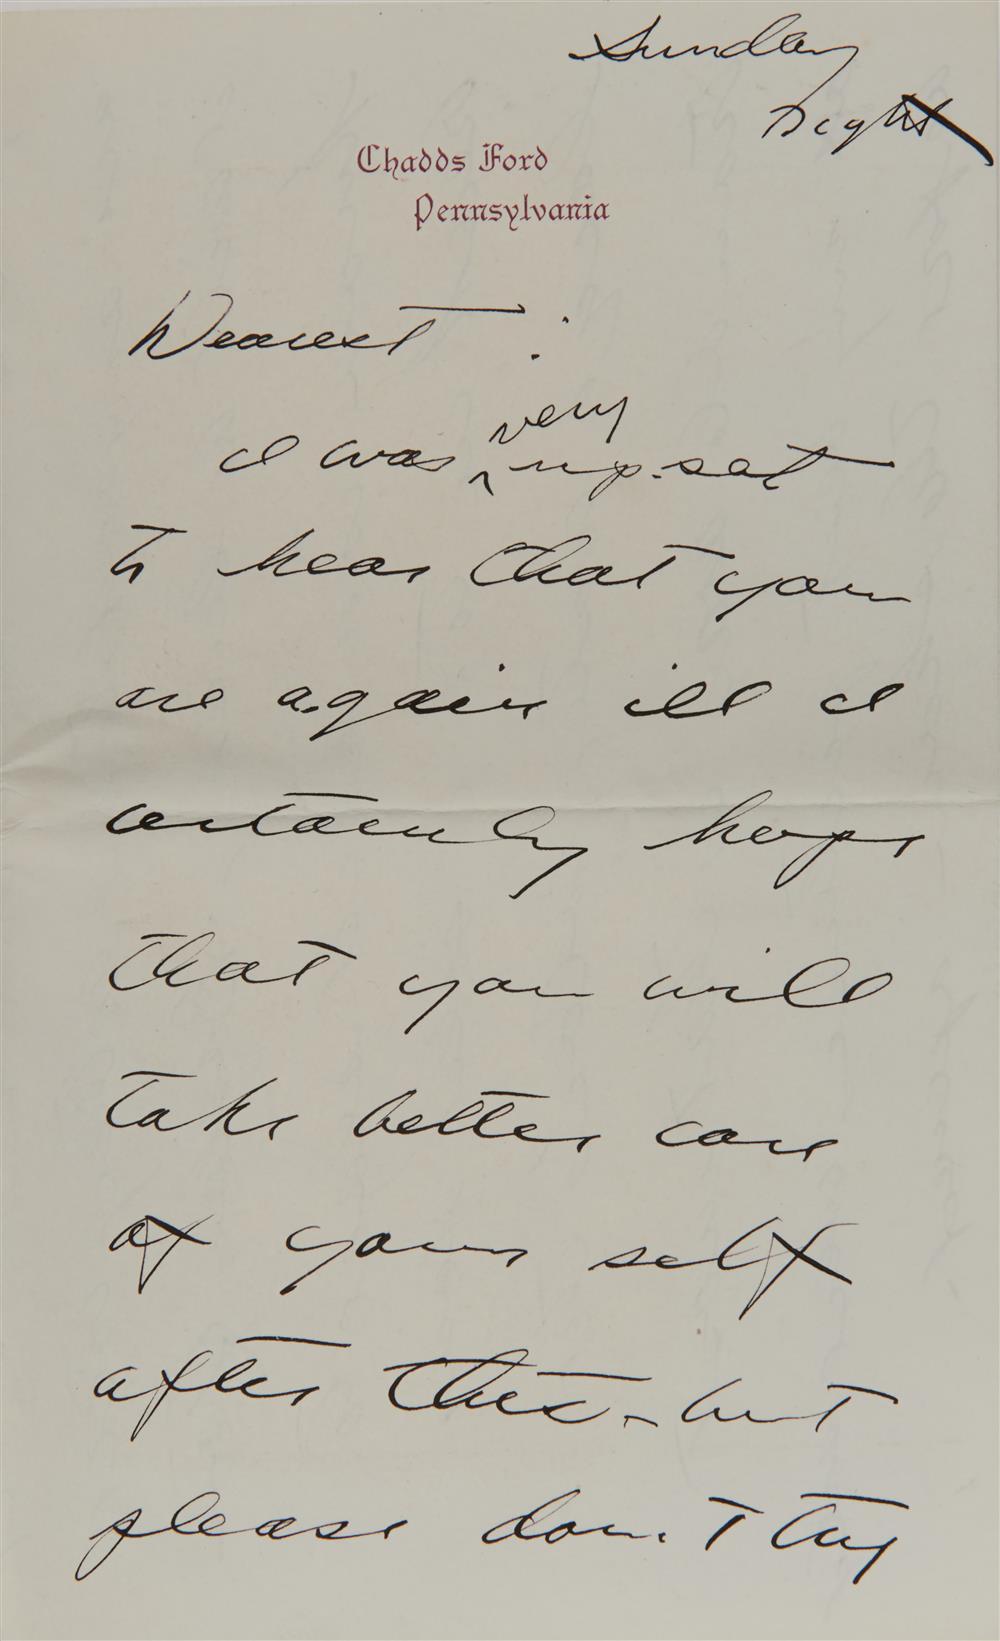 Sunday
night
Chadds Ford
Pennsylvania
Dearest :
I was very up-set
to hear that you
are again ill I
certainly hope
that you will
take better care
of your self
after this - but
please don't try